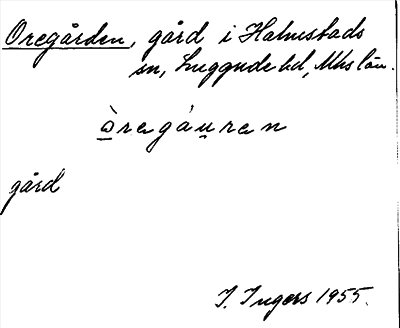 Oregården, gård i Halmstads
sn, Luggude hd, Mhs län.
òregáuren
gård
I. Ingers 1955.